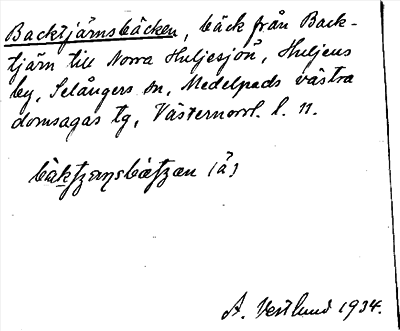 Backtjärnsbäcken, bäck från Back-
tjärn till Norra Huljesjön, Huljens
by, Selångers sn, Medelpads västra
domsagas tg, Västernorrl. l. 11.
(å)
A. Vestlund 1934.